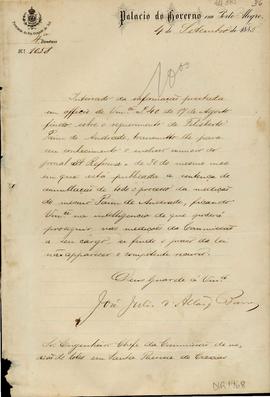 Palacio do Governo em Porto Alegre,
4 de Setembro de 188
Nº 1038
Inteirado da informação prestada
em officio de Vmcê nº 40 de 17 de Agosto
findo sobre o requerimento de Felisberto
Paim de Andrade, transmitto-lhe para
seu conhecimento o incluso numero do
jornal A Reforma de 30 do mesmo mez
em que está publicada a sentença de
annullação de todo o processo da medição
do mesmo Paim de Andrade, ficando
Vmcê na intelligencia de que poderá
proseguir nas medições da Commissão
a seu cargo, si findo o prazo da lei
não apparecer o competente recurso.
Deus Guarde á Vmcê
José Julio d'Albuq. Barros
Sr. Engenheiro Chefe da Commissão de me-
dição de lotes em Santa Thereza de Caxias